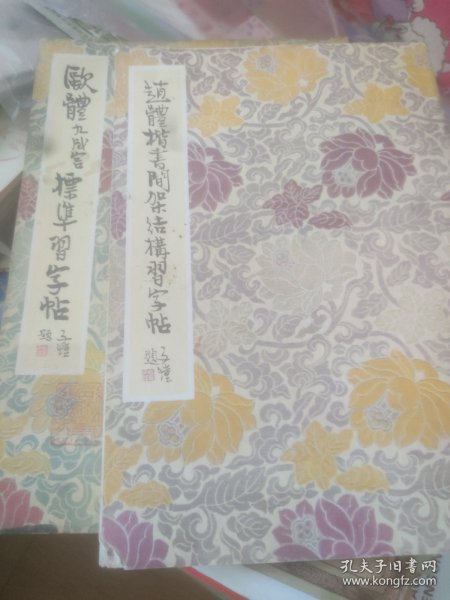 歐體九成宮標準習字帖
子愷題
趙體楷書間架結構習字帖
子愷題
孔夫子旧书网
www.kongfz.com